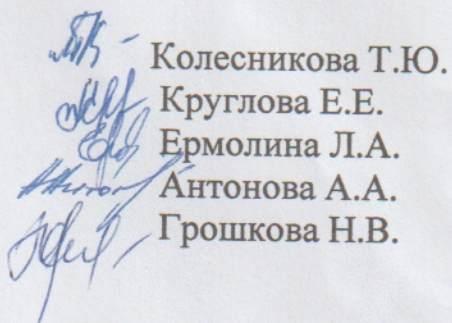 Колесникова Т.Ю.
Круглова Е.Е.
Ермолина Л.А.
Антонова А.А.
Грошкова Н.В.